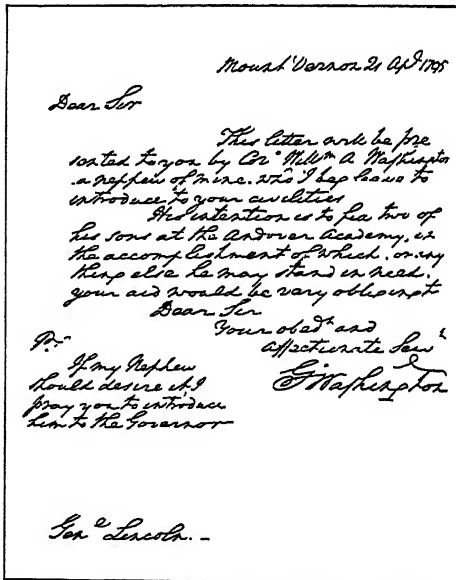 Mount Vernon 21 Apl 1795
Dear Sir
This letter will be pre
sented to you by Col° Wm A Washington
a nephew of mine. who I beg leave to
introduce to your civilities
His intention is to fix two of
his sons at the Andover Academy, in
the accomplishment of which, or any
thing else he may stand in need,
your aid would be very obliging to
Dear Sir
Your obedt and
Affectionate Servt
G Washington
Ps.
If my Nephew
should desire it, I
pray you to introduce
him to the Governor
Genl Lincoln. –